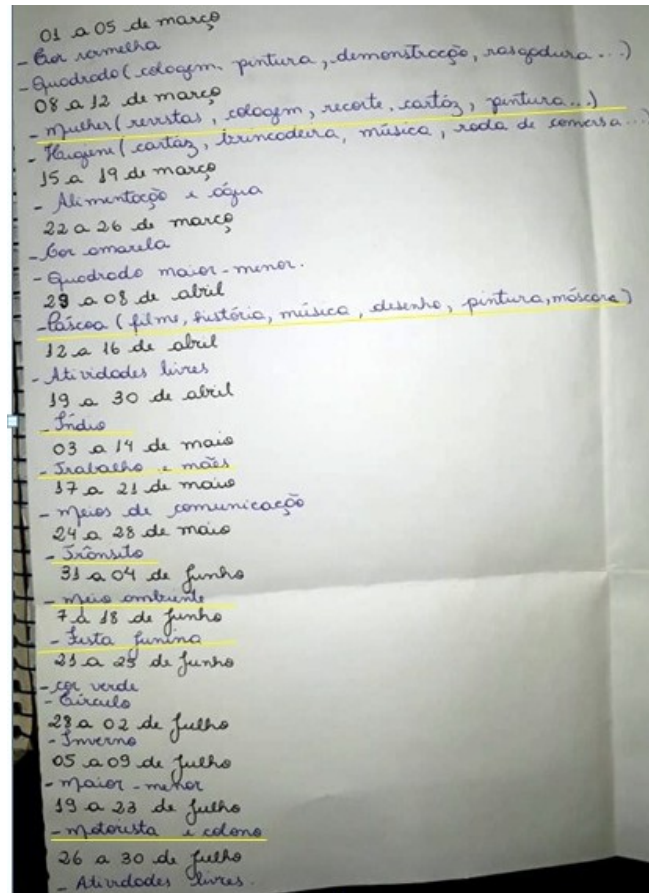 01 a 05 de março
- Cor vermelha
- Quadrado (colagem, pintura, demonstração, rasgadura...)
08 a 12 de março
- Mulher (revistas, colagem, recorte, cartáz, pintura...)
- Higiene (cartáz, brincadeira, música, roda de conversa...)
15 a 19 de março
- Alimentação e água
22 a 26 de março
- Cor amarela
- Quadrado maior-menor.
29 a 08 de abril
- Páscoa (filme, história, música, desenho, pintura, máscara)
12 a 16 de abril
- Atividades livres
19 a 30 de abril
- Índio
03 a 14 de maio
- Trabalho e mães
17 a 21 de maio
- Meios de comunicação
24 a 28 de maio
- Trânsito
31 a 04 de Junho
- Meio ambiente
7 a 18 de Junho
- Festa Junina
21 a 25 de Junho
- cor verde
- Círculo
28 a 02 de Julho
- Inverno
05 a 09 de Julho
- Maior - menor
19 a 23 de Julho
- Motorista e colono
26 a 30 de Julho
- Atividades livres.